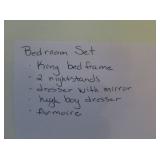 Bedroom Set
· King bed frame
· 2 nightstands
· dresser with mirror
· high boy dresser
· Armoire